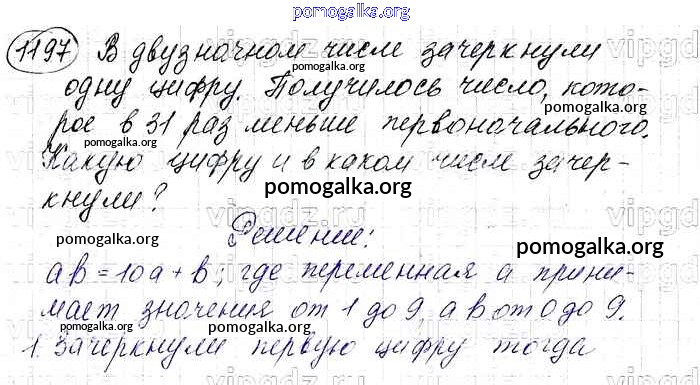 pomogalka.org
1197 В двузначном числе зачеркнули
pomogalka.org
одну цифру. Получилось число, кото-
pomogalka.org
рое в 31 раз меньше первоначального.
pomogalka.org
Какую цифру и в каком числе зачер-
pomogalka.org
кнули?
vipgdz.ru
pomogalka.org
Решение:
pomogalka.org
ab = 10a + b; где переменная a прини-
pomogalka.org
мает значения от 1 до 9, а b от 0 до 9.
pomogalka.org
1. Зачеркнули первую цифру тогда